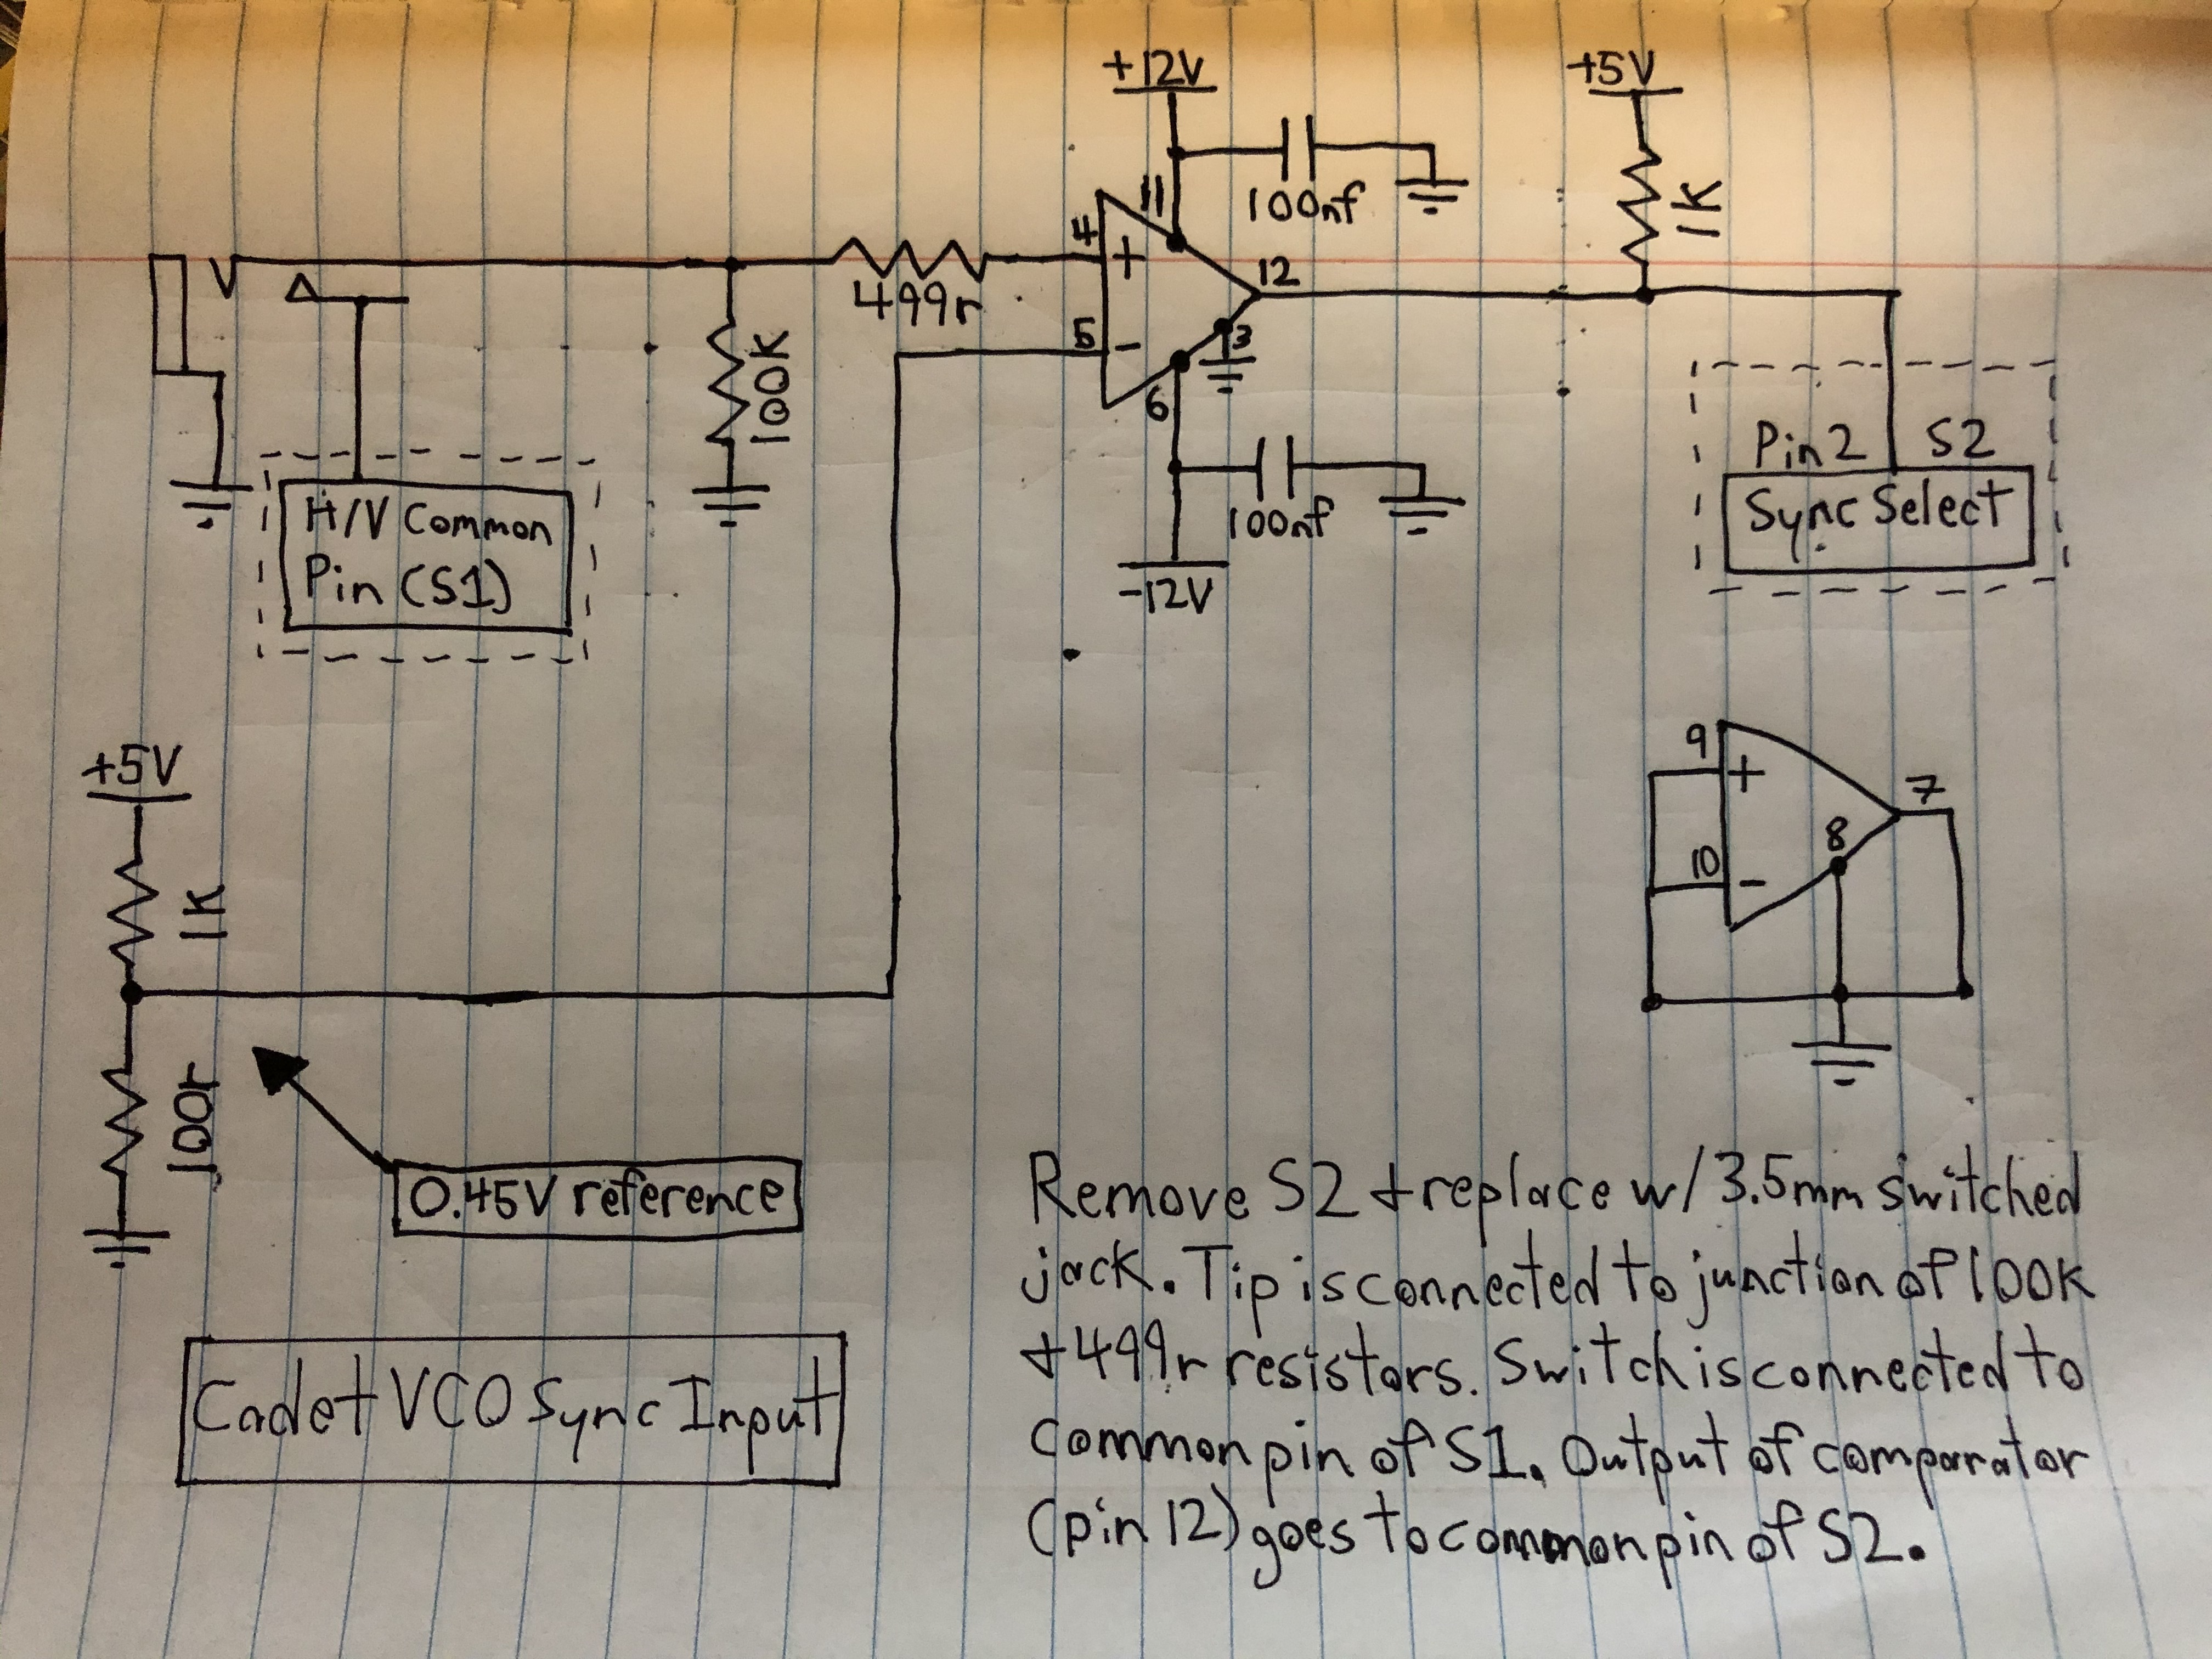 +12V
+5V
11
100nf
1K
4
+
12
499r
5
-
3
100K
6
Pin 2 S2
Sync Select
H/V Common
Pin (S1)
100nf
-12V
+5V
9
+
7
8
10
-
1K
100r
0.45V reference
Cadet VCO Sync Input
Remove S2 + replace w/ 3.5mm switched
jack. Tip is connected to junction of 100K
+ 499r resistors. Switch is connected to
common pin of S1. Output of comparator
(pin 12) goes to common pin of S2.